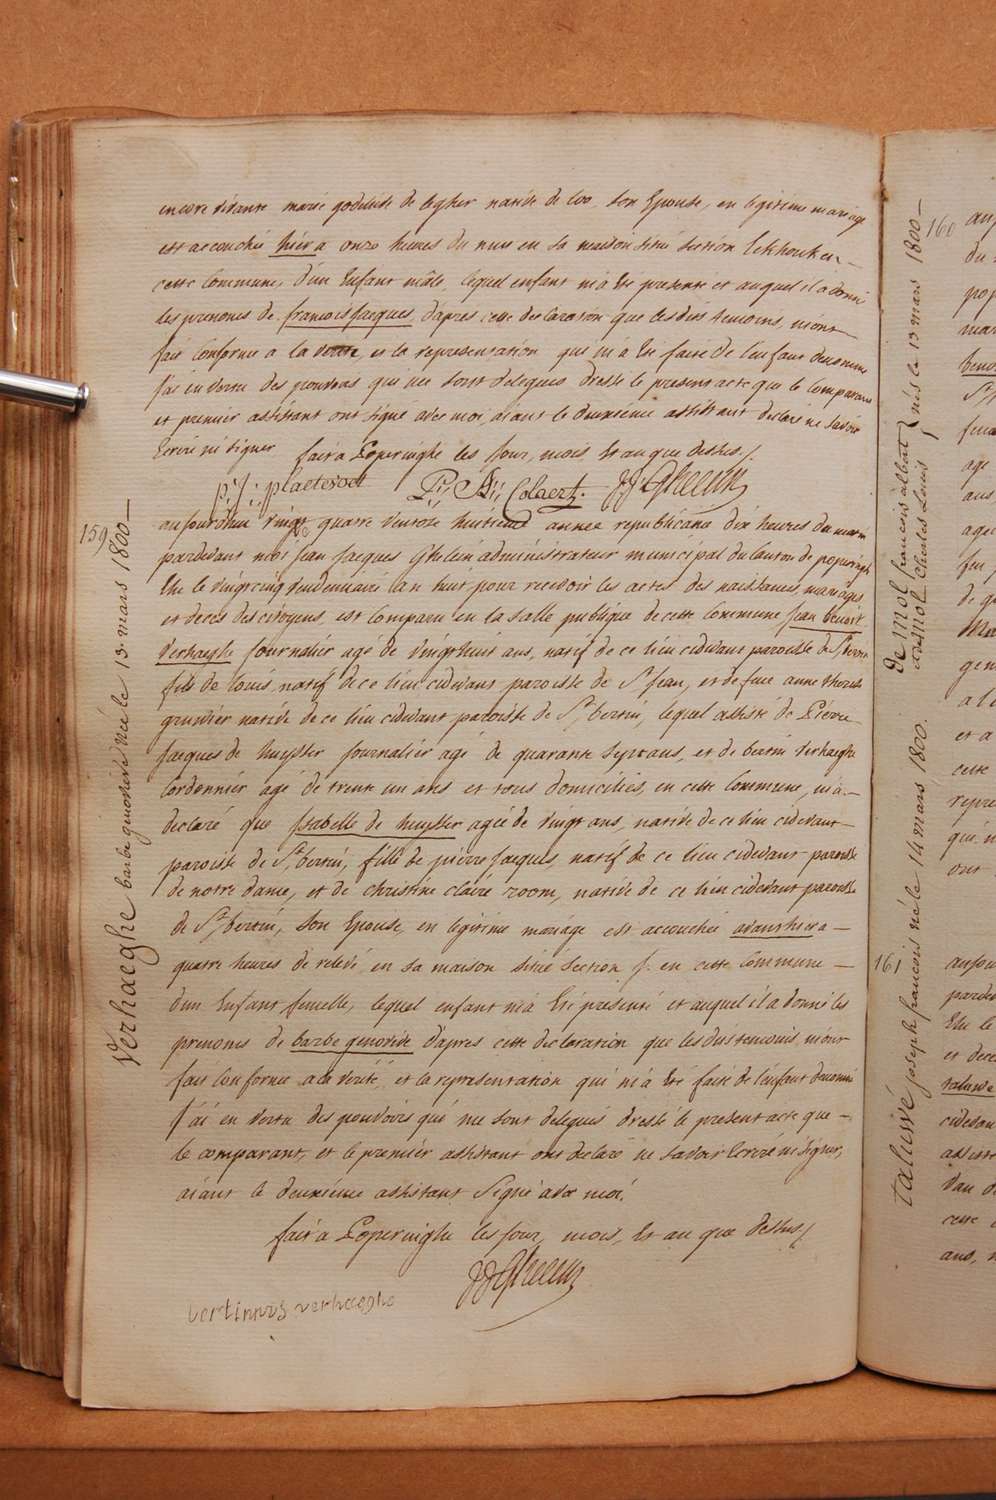 encore vivante marie godelive de Cogher native de loo, son Epouse, en legitime mariage
est accouchée hier a onze heures du nuit en sa maison située section
cette Commune, d'un Enfant mâle, lequel enfant m'a été presenté et auquel il a donné
les prenoms de francois Jacques, d'apres cette declaration que les dits temoins, m'ont
fait conforme a la verité, et la representation qui m'a été faite de l'enfant denommé
J'ai en vertu des pouvoirs qui me sont delegués dressé le present acte que le comparant
et premier assistant ont signé avec moi, aiant le deuxieme assistant declaré ne savoir
Ecrire ni signer fait a Poperinghe les Jour, mois et an que dessus /.
p: j: plaetevoet P: A: Colaert. JJ Ghelein
159
aujourdhui vingt quatre ventose huitieme année republicaine dix heures du matin
pardevant moi Jean Jacques Ghelein administrateur municipal du Canton de poperinghe
Elu le vingt cinq vendemiaire l'an huit pour recevoir les actes des naissances, mariages
et decès des citoyens, est Comparu en la salle publique de cette Commune Jean benoit
verhaeghe Journalier agé de vingt huit ans, natif de ce lieu cidevant paroisse de St bertin
fils de louis natif de ce lieu cidevant paroisse de St Jean, et de feue anne therese
native de ce lieu cidevant paroisse de St bertin, lequel assisté de Pierre
Jacques de huysser Journalier agé de quarante sept ans, et de bertin verhaeghe
Cordonnier agé de trente un ans et tous domiciliés, en cette Commune, m'a —
declaré que Isabelle de huysser agée de vingt ans, native de ce lieu cidevant
paroisse de St bertin, fille de pierre Jacques natif de ce lieu cidevant paroisse
de notre dame, et de christine claire room, native de ce lieu cidevant paroisse
de St bertin, son Epouse, en legitime mariage est accouchée avanthier a —
quatre heures de relevé, en sa maison située section f. en cette Commune —
d'un Enfant femelle, lequel enfant m'a été presenté et auquel il a donné les
prenoms de barbe genovive d'apres cette declaration que les dits temoins m'ont
fait Conforme a la verité, et la representation qui m'a été faite de l'enfant denommé
J'ai en vertu des pouvoirs qui me sont delegués dressé le present acte que —
le comparant, et le premier assistant ont declaré ne savoir Ecrire ni signer,
aiant le deuxieme assistant signé avec moi.
fait a Poperinghe les Jour, mois, et an que dessus /.
JJ Ghelein
bertinnus verhaeghe
verhaeghe barbe genovive née le 13 mars 1800 —
de mol francois albert
de mol Charles Louis } nés le 13 mars 1800 —
160
talissé joseph francois né le 14 mars 1800.
161